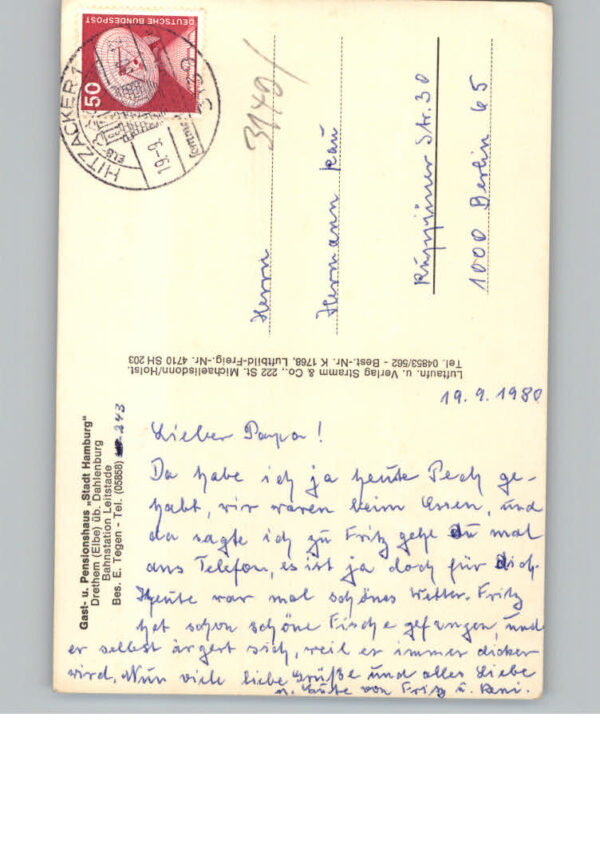 DEUTSCHE BUNDESPOST
50
HITZACKER 1
19.-9.
3139
3140/
Herrn
Hermann Kau
Str. 30
1000 Berlin 65
Luftaufn. u. Verlag Stramm & Co., 222 St. Michaelisdonn/Holst.
Tel. 04853/562 - Best.-Nr. K 1768, Luftbild-Freig.-Nr. 4710 SH 203
Gast- u. Pensionshaus „Stadt Hamburg"
Drethem (Elbe) üb. Dahlenburg
Bahnstation Leitstade
Bes. E. Tegen - Tel. (05858) 243
19.9.1980
Lieber Papa!
Da habe ich ja heute Pech ge-
habt, wir waren beim Essen, und
da sagte ich zu Fritz gehe Du mal
ans Telefon, es ist ja doch für Dich.
Heute war mal schönes Wetter. Fritz
hat schon schöne Fische gefangen, und
er selbst ärgert sich, weil er immer dicker
wird. Nun viele liebe Grüße und alles Liebe
u. Gute von Fritz u.